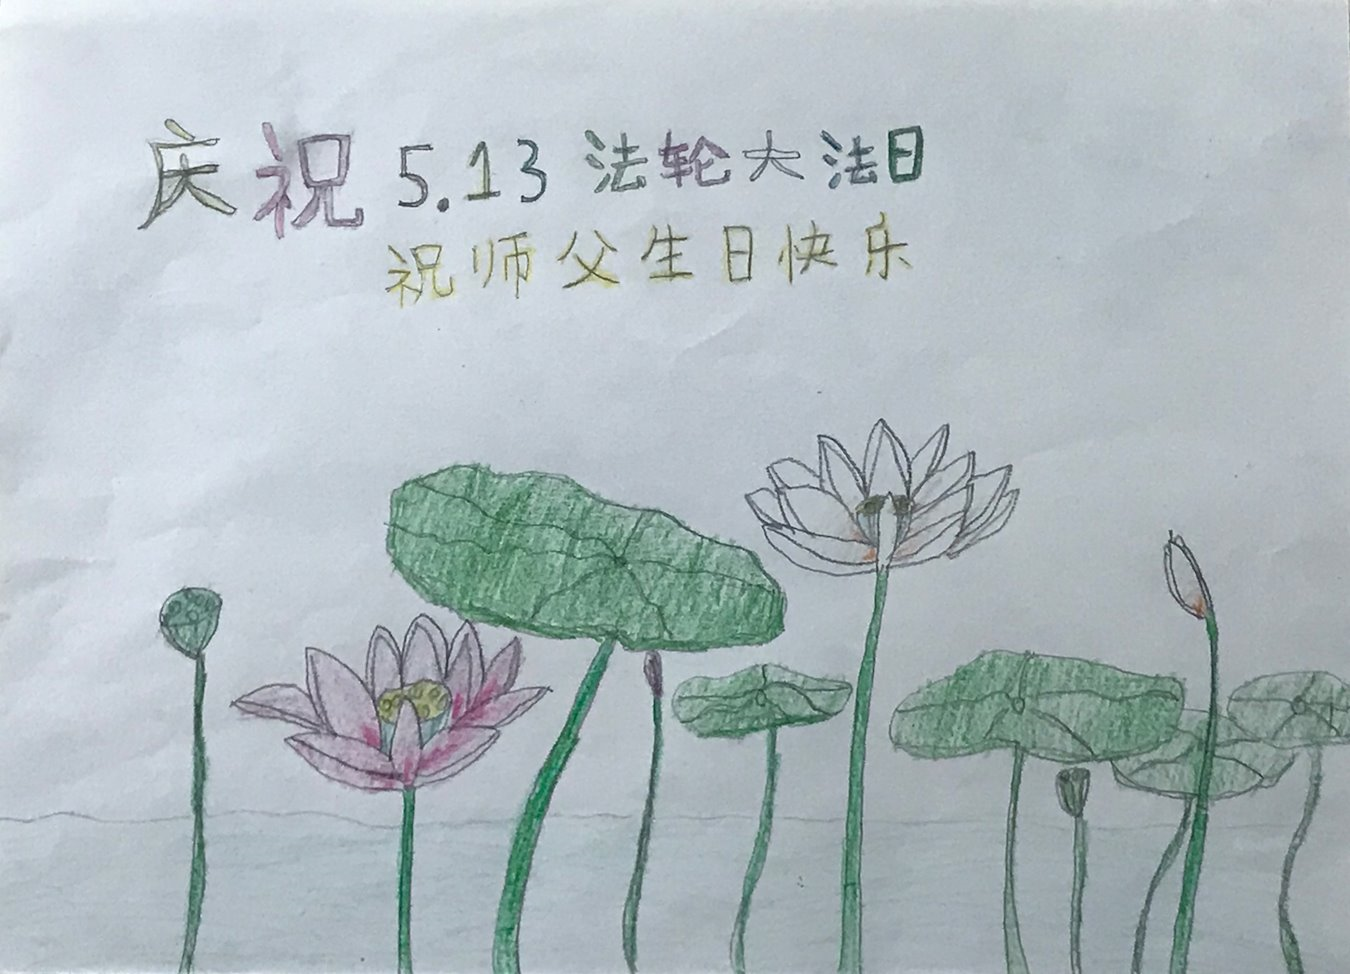 庆祝 5.13 法轮大法日
祝师父生日快乐